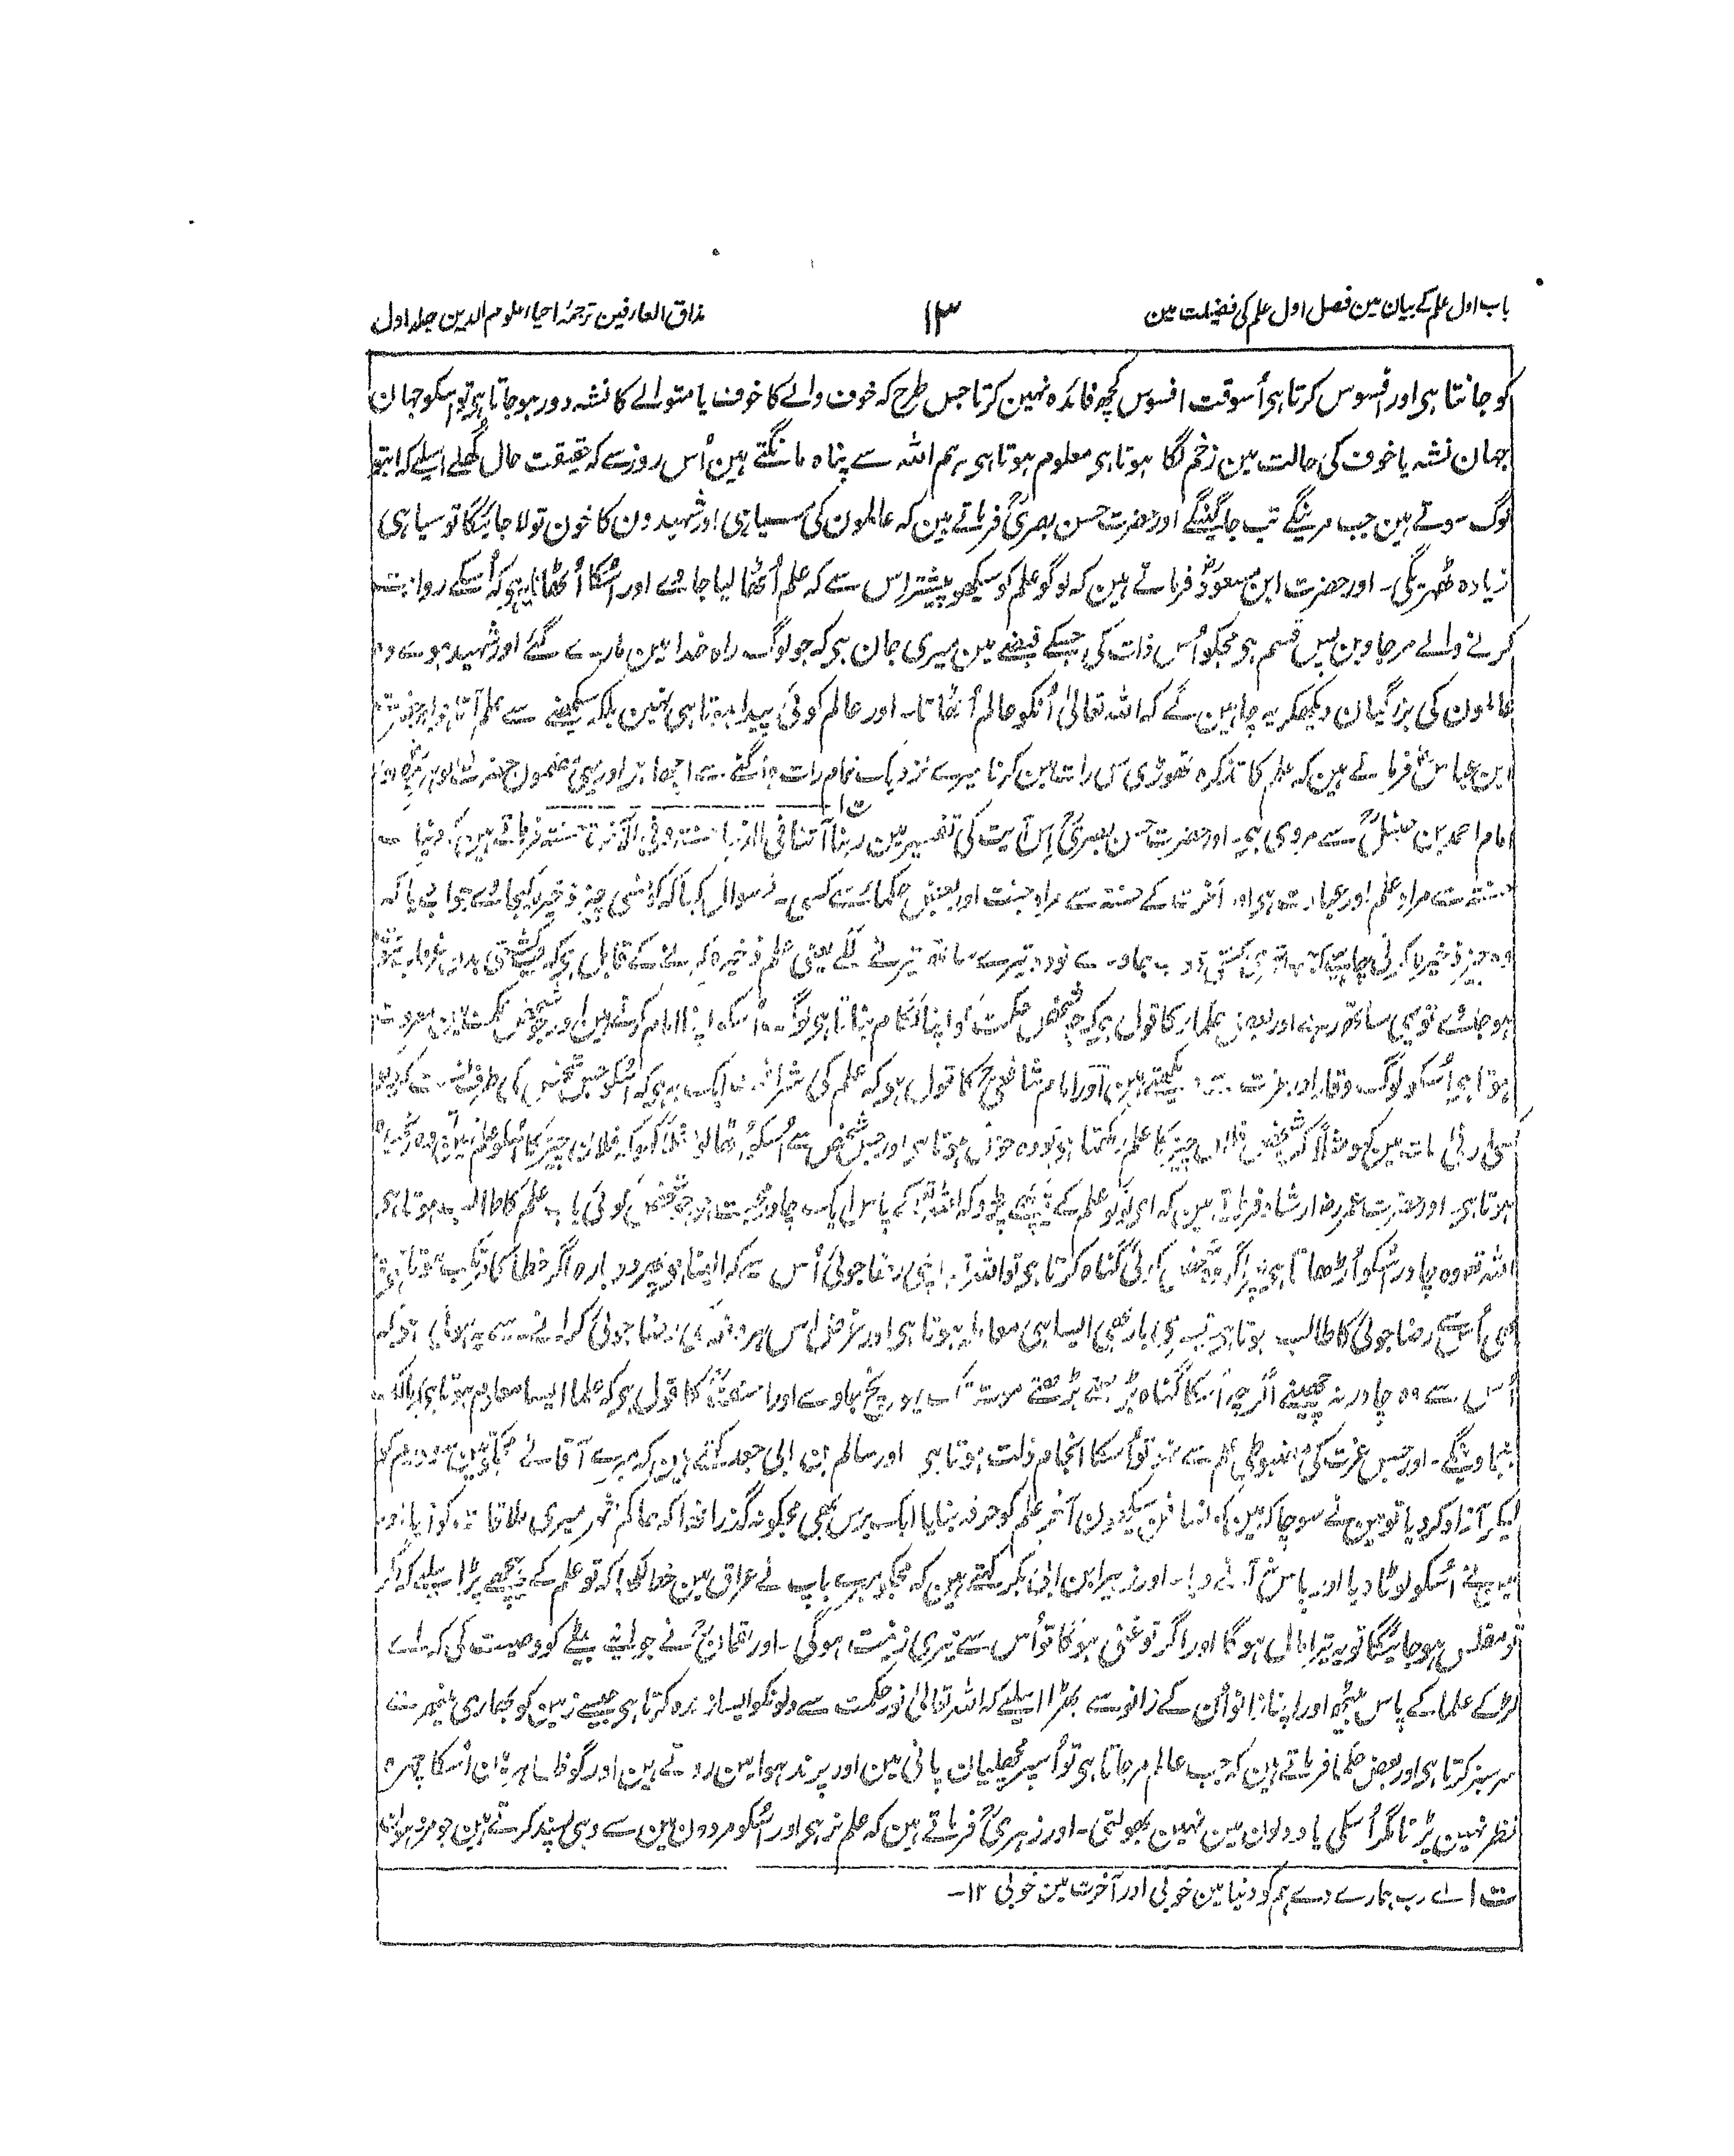 باب اول علم کے بیان مین فصل اول علم کی فضیلت مین
۱۳
مذاق العارفین ترجمۂ احیاء علوم الدین جلد اول
کو جانتا ہی اور افسوس کرتا ہی اُسوقت افسوس کچھ فائدہ نہین کرتا جس طرح کہ خوف والے کا خوف یا متوالے کا نشہ دور ہو جاتا ہی تو اسکو جہان
جہان نشہ یا خوف کی حالت مین زخم لگا ہوتا ہی معلوم ہوتا ہی ہم اللہ سے پناہ مانگتے ہین اُس روز سے کہ حقیقت حال کُھلے اسلیے کہ ابتو
لوگ سوتے ہین جب مرینگے تب جاگینگے اور حضرت حسن بصریؒ فرماتے ہین کہ عالمون کی سیاہی اور شہیدون کا خون تولا جائیگا تو سیاہی
زیادہ ٹھہریگی۔ اور حضرت ابن مسعودؓ فرماتے ہین کہ لوگو علم کو سیکھو پیشتر اِس سے کہ علم اُٹھا لیا جاے اور اُسکا اُٹھانا یہ ہو کہ اُسکے روایت
کرنے والے مر جاوین پس قسم ہی مجکو اُس ذات کی جسکے قبضے مین میری جان ہی کہ جو لوگ راہ خدا مین مارے گئے اور شہید ہوے وہ
عالمون کی بزرگیان دیکھکر یہ چاہین گے کہ اللہ تعالیٰ اُنکو عالم اُٹھاتا۔ اور عالم کوئی پیدا ہوتا ہی نہین بلکہ سیکھنے سے علم آتا ہی اور حضرت
ابن عباسؓ فرماتے ہین کہ علم کا تذکرہ تھوڑی سی رات مین کرنا میرے نزدیک تمام رات جاگنے سے اچھا ہی اور یہی مضمون حضرت ابو ہریرہؓ اور
امام احمد بن حنبلؒ سے مروی ہی۔ اور حضرت حسن بصریؒ اِس آیت کی تفسیر مین ربنا آتنا فی الدنیا حسنة وفی الآخرة حسنة فرماتے ہین کہ دنیا کے
حسنہ سے مراد علم اور عبادت ہی اور آخرت کے حسنہ سے مراد جنت اور بعض حکما سے کسی نے سوال کیا کہ کونسی چیز ذخیرہ کیجاے جواب دیا کہ
وہ چیز ذخیرہ کرنی چاہیے کہ جب تیری کشتی ڈوب جاوے تو وہ تیرے ساتھ تیرنے لگے یعنی علم ذخیرہ کرنے کے قابل ہی کہ کشتی بدن
ہو جائے تو بھی ساتھ رہے اور بعض علما کا قول ہی کہ جو شخص حکمت کو اپنا لگام بناتا ہی لوگ اُسکو اپنا امام کرتے ہین اور جو شخص حکمت مین معروف
ہوتا ہی اُسکو لوگ وقار اور عزت سے دیکھتے ہین اور امام شافعیؒ کا قول ہی کہ علم کی شرافت ایک یہ ہی کہ اُسکو جس شخص کی طرف نسبت کردو
ہوتا ہی۔ اور حضرت عمر رضہ ارشاد فرماتے ہین کہ ای لوگو علم کے پیچھے پڑو کہ اللہ کے پاس ایک چادر محبت ہی جو شخص کوئی باب علم کا طالب ہوتا ہی
اللہ تعہ وہ چادر اُسکو اُڑھاتا ہی پھر اگر وہ شخص کوئی گناہ کرتا ہی تو اللہ تعہ اپنی رضا جوئی اُس سے کرا لیتا ہی پھر دوبارہ اگر خطا کا مرتکب ہوتا ہی
بھی اُسے رضا جوئی کا طالب ہوتا ہی تیسری بار بھی ایسا ہی معاملہ ہوتا ہی اور غرض اِس ہر دفعہ کی رضا جوئی کرانے سے یہ ہوتی ہی کہ
اُس سے وہ چادر نہ چھینے اگرچہ اُسکا گناہ بڑھتے بڑھتے موت تک پہونچ جاوے اور احنفؒ کا قول ہی کہ علما ایسا معلوم ہوتا ہی
بنجاوینگے۔ اور جس عزت کی مضبوطی علم سے نہو تو اُسکا انجام ذلت ہوتا ہی اور سالم بن ابی جعد کہتے ہین کہ میرے آقا نے مجکو تین سو درم کو
لیکر آزاد کردیا تو مین نے سوچا کہ مین کونسا فن سیکھون آخر علم کو حرفہ بنایا ایک برس بھی مجکو نہ گذرا تھا کہ حاکم شہر میری ملاقات کو آیا اور
میں نے اُسکو لوٹا دیا اور پاس نہ آنے دیا۔ اور زبیر ابن ابی بکر کہتے ہین کہ مجکو میرے باپ نے عراق مین خط لکھا کہ تو علم کے پیچھے پڑ اسلیے کہ اگر
تو مفلس ہو جائیگا تو یہ تیرا مال ہوگا اور اگر تو غنی ہوگا تو اُس سے تیری زینت ہوگی۔ اور لقمانؑ نے جو اپنے بیٹے کو وصیت کی کہ اے
لڑکے علما کے پاس بیٹھ اور اپنا زانو اُن کے زانو سے بھڑا اسلیے کہ اللہ تعالیٰ نور حکمت سے دلونکو ایسا زندہ کرتا ہی جیسے زمین کو بھاری مینھ سے
سرسبز کرتا ہی اور بعض حکما فرماتے ہین کہ جب عالم مر جاتا ہی تو اُسپر مچھلیان پانی مین اور پرند ہوا مین روتے ہین اور گو ظاہر مین اُسکا چہرہ
نظر نہین پڑتا مگر اُسکی یاد دلون مین نہین بھولتی۔ اور زہریؒ فرماتے ہین کہ علم نر ہی اور اُسکو مردون مین سے وہی پسند کرتے ہین جو مرد
ت ۱ اے رب ہمارے دے ہم کو دنیا مین خوبی اور آخرت مین خوبی ۱۲۔